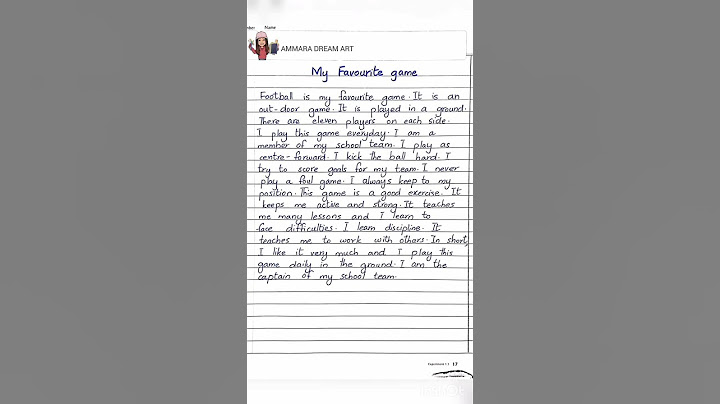 Name
AMMARA DREAM ART
My Favourite game
Football is my favourite game. It is an
out-door game. It is played in a ground.
There are eleven players on each side.
I play this game everyday. I am a
member of my school team. I play as
centre-forward. I kick the ball hard. I
try to score goals for my team. I never
play a foul game. I always keep to my
position. This game is a good exercise. It
keeps me active and strong. It teaches
me many lessons and I learn to
face difficulties. I learn discipline. It
teaches me to work with others. In short,
I like it very much and I play this
game daily in the ground. I am the
captain of my school team.
17